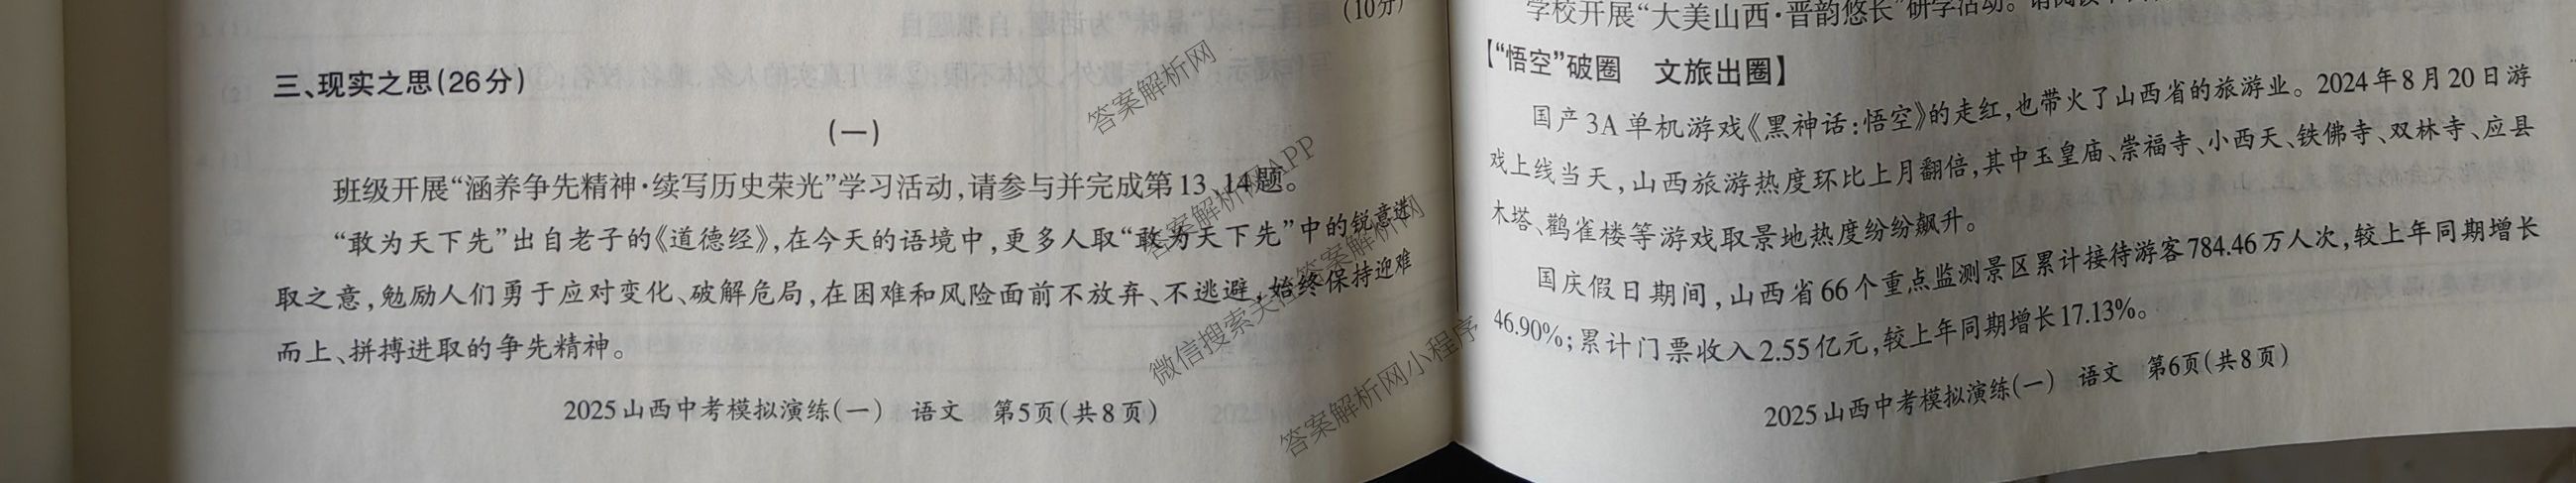 (10分)
三、现实之思(26分)
(一)
班级开展“涵养争先精神·续写历史荣光”学习活动,请参与并完成第13、14题。
“敢为天下先”出自老子的《道德经》,在今天的语境中,更多人取“敢为天下先”中的锐意进
取之意,勉励人们勇于应对变化、破解危局,在困难和风险面前不放弃、不逃避,始终保持迎难
而上、拼搏进取的争先精神。
2025山西中考模拟演练(一) 语文 第5页(共8页)
学校开展“大美山西·晋韵悠长”研学活动。
【“悟空”破圈 文旅出圈】
国产3A单机游戏《黑神话:悟空》的走红,也带火了山西省的旅游业。2024年8月20日游
戏上线当天,山西旅游热度环比上月翻倍,其中玉皇庙、崇福寺、小西天、铁佛寺、双林寺、应县
木塔、鹳雀楼等游戏取景地热度纷纷飙升。
国庆假日期间,山西省66个重点监测景区累计接待游客784.46万人次,较上年同期增长
46.90%;累计门票收入2.55亿元,较上年同期增长17.13%。
2025山西中考模拟演练(一) 语文 第6页(共8页)
答案解析网
答案解析网APP
微信搜索关注答案解析网
答案解析网小程序